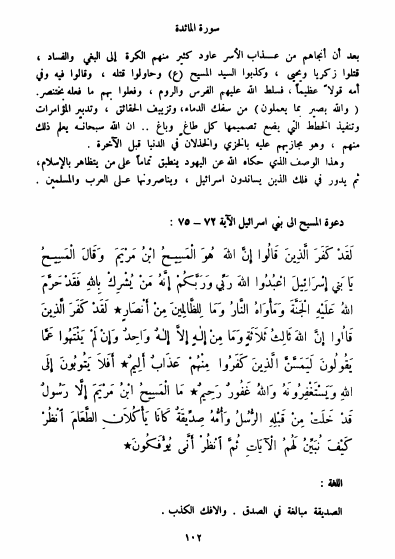 سورة المائدة
بعد أن أنجاهم من عذاب الأسر عاود كثير منهم الكرة إلى البغي والفساد ،
قتلوا زكريا ويحيى ، وكذبوا السيد المسيح (ع) وحاولوا قتله ، وقالوا فيه وفي
أمه قولاً عظيماً ، فسلط الله عليهم الفرس والروم ، وفعلوا بهم ما فعله بختنصر.
( والله بصير بما يعملون ) من سفك الدماء، وتزييف الحقائق ، وتدبير المؤامرات
وتنفيذ الخطط التي يضع تصميمها كل طاغ وباغ .. ان الله سبحانه يعلم ذلك
منهم ، وهو مجازيهم عليه بالخزي والخذلان في الدنيا قبل الآخرة .
وهذا الوصف الذي حكاه الله عن اليهود ينطبق تماماً على من يتظاهر بالإسلام،
ثم يدور في فلك الذين يساندون اسرائيل ، ويناصرونها على العرب والمسلمين .
دعوة المسيح الى بني اسرائيل الآية ٧٢ – ٧٥ :
لَقَدْ كَفَرَ الَّذِينَ قَالُوا إِنَّ اللهَ هُوَ الْمَسِيحُ ابْنُ مَرْيَمَ وَقَالَ الْمَسِيحُ
يَا بَنِي إِسْرَائِيلَ اعْبُدُوا اللهَ رَبِّي وَرَبَّكُمْ إِنَّهُ مَنْ يُشْرِكْ بِاللهِ فَقَدْ حَرَّمَ
اللهُ عَلَيْهِ الْجَنَّةَ وَمَأْوَاهُ النَّارُ وَمَا لِلظَّالِمِينَ مِنْ أَنْصَارٍ★ لَقَدْ كَفَرَ الَّذِينَ
قَالُوا إِنَّ اللهَ ثَالِثُ ثَلَاثَةٍ وَمَا مِنْ إِلٰهٍ إِلَّا إِلٰهٌ وَاحِدٌ وَإِنْ لَمْ يَنْتَهُوا عَمَّا
يَقُولُونَ لَيَمَسَّنَّ الَّذِينَ كَفَرُوا مِنْهُمْ عَذَابٌ أَلِيمٌ★ أَفَلَا يَتُوبُونَ إِلَى
اللهِ وَيَسْتَغْفِرُونَهُ وَاللهُ غَفُورٌ رَحِيمٌ★ مَا الْمَسِيحُ ابْنُ مَرْيَمَ إِلَّا رَسُولٌ
قَدْ خَلَتْ مِنْ قَبْلِهِ الرُّسُلُ وَأُمُّهُ صِدِّيقَةٌ كَانَا يَأْكُلَانِ الطَّعَامَ انْظُرْ
كَيْفَ نُبَيِّنُ لَهُمُ الْآيَاتِ ثُمَّ انْظُرْ أَنَّى يُؤْفَكُونَ★
اللغة :
الصديقة مبالغة في الصدق . والافك الكذب .
١٠٢